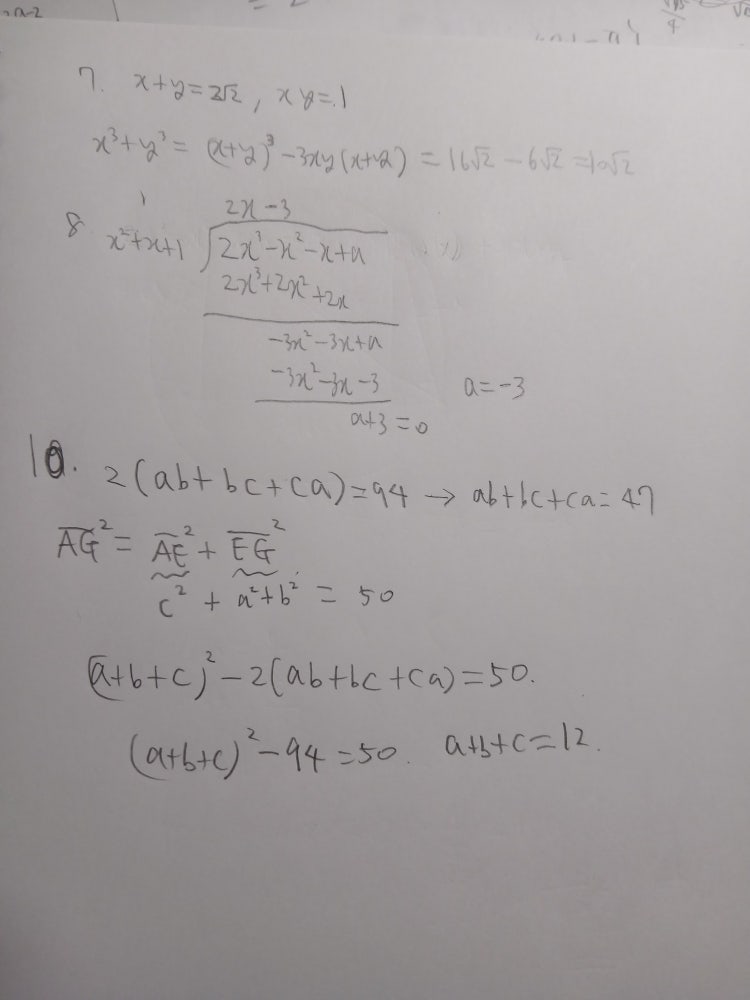 7. x+y=2√2, xy=1
x³+y³ = (x+y)³-3xy(x+y) = 16√2 - 6√2 = 10√2
2x-3
8 x²+x+1 ) 2x³-x²-x+a
2x³+2x²+2x
-3x²-3x+a
-3x²-3x-3
a=-3
a+3=0
10. 2(ab+bc+ca)=94 → ab+bc+ca=47
A̅G̅² = A̅E̅² + E̅G̅²
c² + a²+b² = 50
(a+b+c)²-2(ab+bc+ca)=50.
(a+b+c)²-94=50. a+b+c=12.